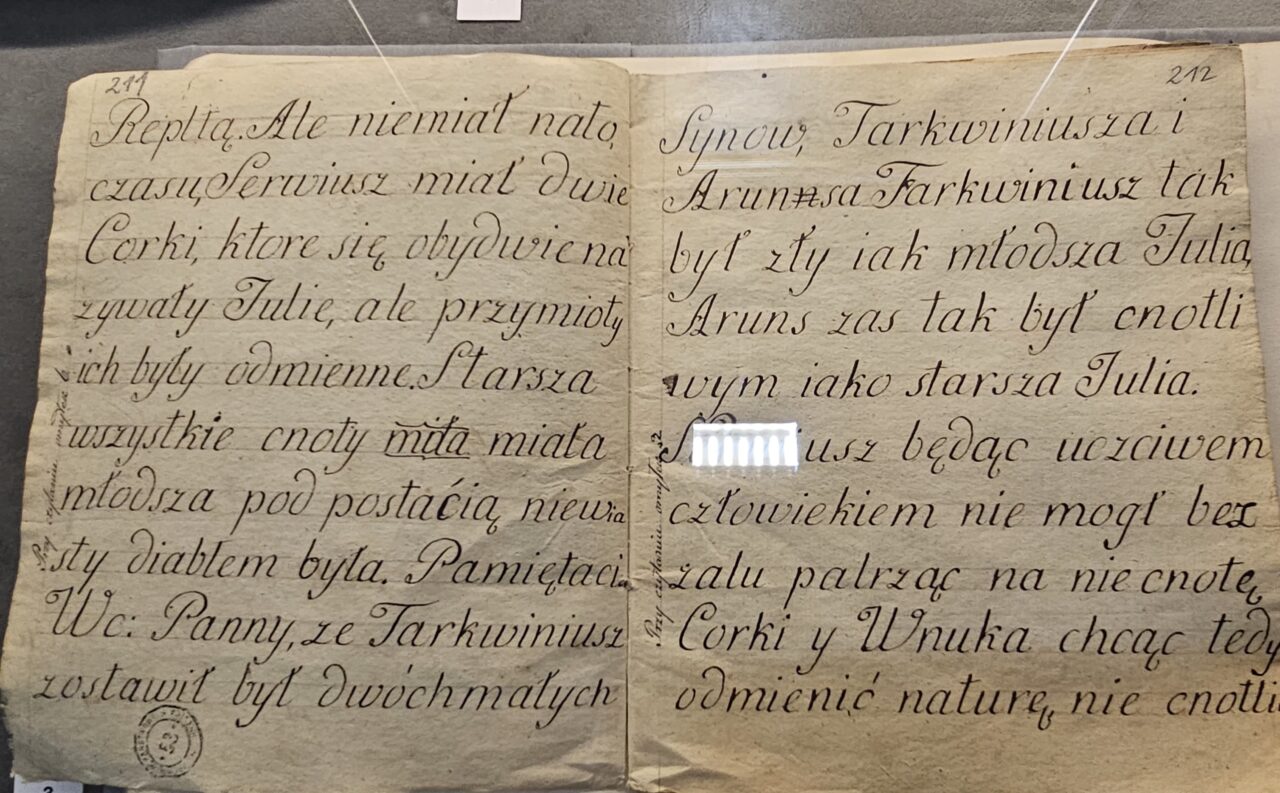 211
Repltą. Ale niemiał nato,
czasu, Serwiusz miał dwie
Corki, ktore się obydwie na
zywały Julie, ale przymioty
ich były odmienne. Starsza
wszystkie cnoty miła miała
młodsza pod postaćią niewia
sty diabłem była. Pamiętaci
Wc: Panny, ze Tarkwiniusz
zostawił był dwóch małych
Przy czytaniu
212
Synow, Tarkwiniusza i
Arunnsa Tarkwiniusz tak
był zły iak młodsza Julia,
Aruns zas tak był cnotli
wym iako starsza Julia.
iusz będąc uczciwem
człowiekiem nie mogł bez
zalu patrząc na nie cnotę
Corki y Wnuka chcąc tedy
odmienić naturę, nie cnotli
Przy czytaniu